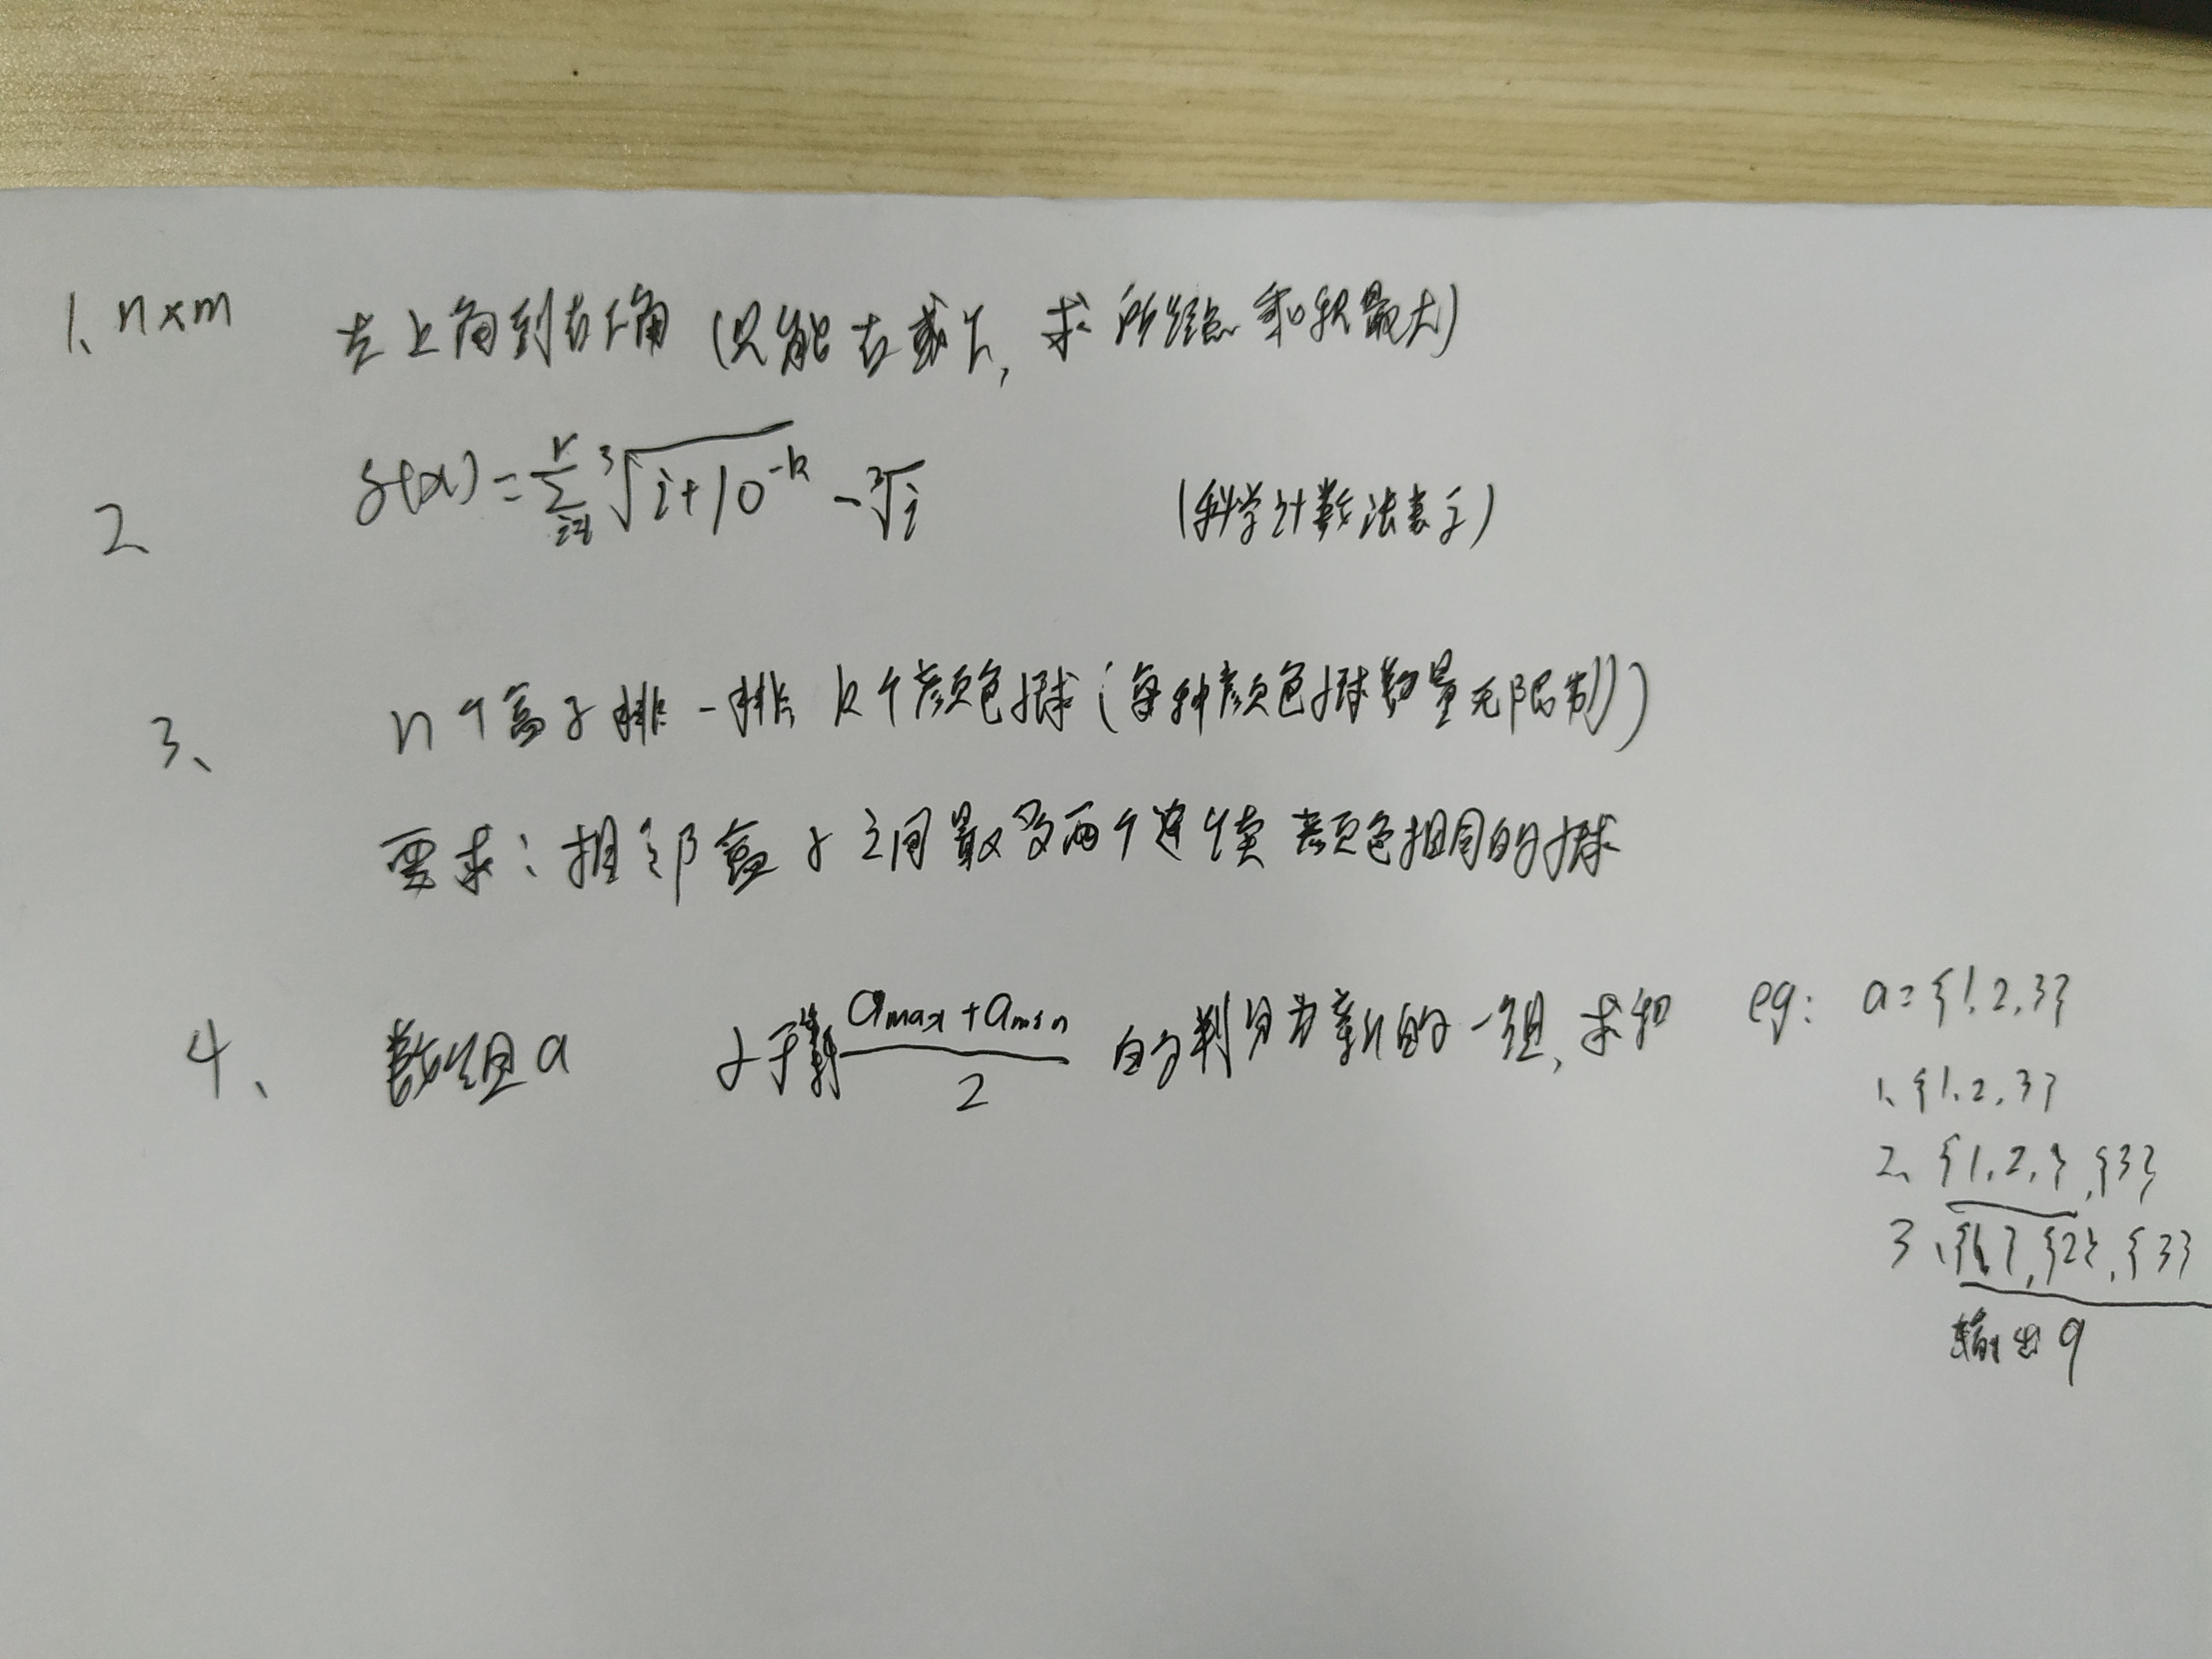 1、n×m 左上角到右下角 (只能右或下, 求所经点乘积最大)
2、 f(x) = \sum_{i=1}^{r} \sqrt[3]{i+10^{-k}} - \sqrt[3]{i} (科学计数法表示)
3、 n个盒子排一排 k个颜色球 (每种颜色球数量无限制)
要求: 相邻盒子之间最多两个连续颜色相同的球
4、 数组a 小于等于 \frac{a_{max}+a_{min}}{2} 的划分为新的一组, 求和 eg: a={1,2,3}
1、{1,2,3}
2、{1,2,},{3}
3、{1},{2},{3}
输出9